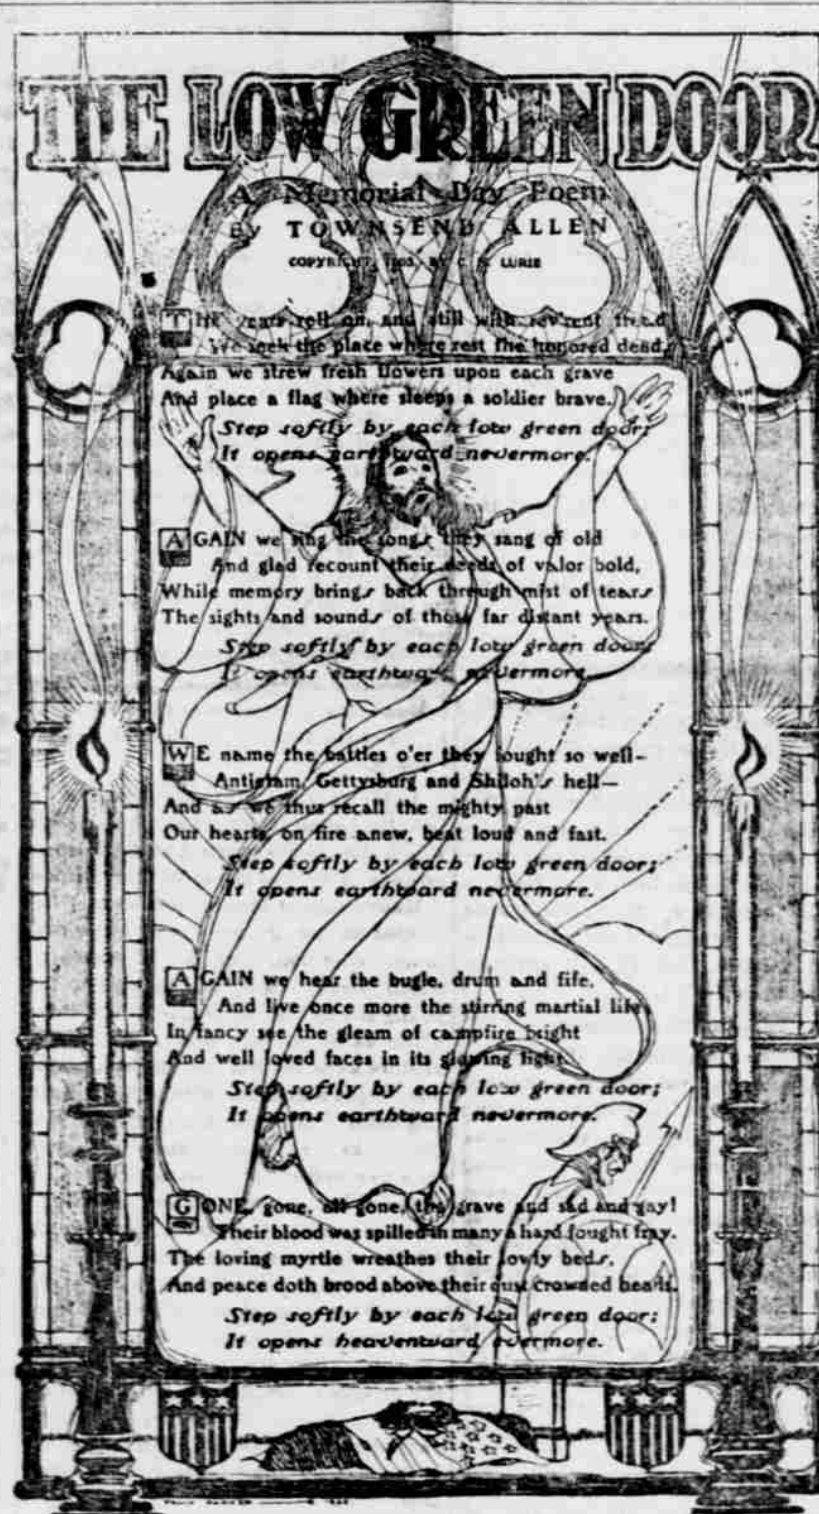 THE LOW GREEN DOOR
A Memorial Day Poem
By TOWNSEND ALLEN
COPYRIGHT, BY C. N. LURIE
THE years roll on, and still with rev'rent tread
We seek the place where rest the honored dead,
Again we strew fresh flowers upon each grave
And place a flag where sleeps a soldier brave.
Step softly by each low green door;
It opens earthward nevermore.
AGAIN we sing the songs they sang of old
And glad recount their deeds of valor bold,
While memory brings back through mist of tears
The sights and sounds of those far distant years.
Step softly by each low green door;
It opens earthward nevermore.
WE name the battles o'er they fought so well—
Antietam, Gettysburg and Shiloh's hell—
And as we thus recall the mighty past
Our hearts, on fire anew, beat loud and fast.
Step softly by each low green door;
It opens earthward nevermore.
AGAIN we hear the bugle, drum and fife,
And live once more the stirring martial life,
In fancy see the gleam of campfire bright
And well loved faces in its glowing light.
Step softly by each low green door;
It opens earthward nevermore.
GONE, gone, all gone, the grave and sad and gay!
Their blood was spilled in many a hard fought fray.
The loving myrtle wreathes their lowly beds,
And peace doth brood above their dust crowned heads.
Step softly by each low green door;
It opens heavenward evermore.